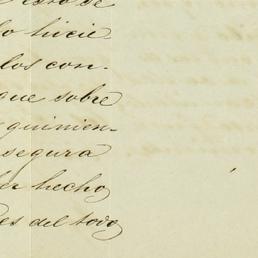 esto de
lo hicie-
los con-
que sobre
quinien-
segura
ber hecho
es del todo